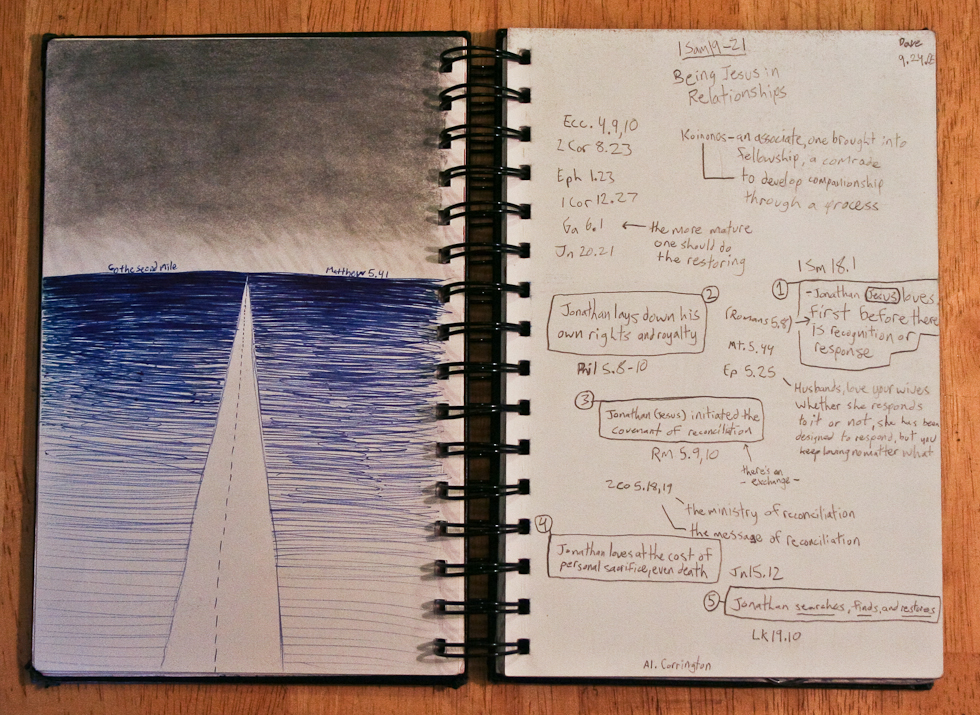 Go the second mile
Matthew 5.41
1 Sam 19-21
Dave
9.24.
Being Jesus in
Relationships
Ecc. 4.9,10
2 Cor 8.23
Eph 1.23
1 Cor 12.27
Ga 6.1
Jn 20.21
the more mature
one should do
the restoring
Koinonos-an associate, one brought into
fellowship, a comrade
to develop companionship
through a process
1 Sm 18.1
1
-Jonathan Jesus loves
First before there
is recognition or
response
2
Jonathan lays down his
own rights and royalty
Phil 5.8-10
(Romans 5.8)
Mt. 5.44
Ep 5.25
Husbands, love your wives
whether she responds
to it or not, she has been
designed to respond, but you
keep loving no matter what
3
Jonathan (Jesus) initiated the
covenant of reconciliation
Rm 5.9,10
there's an
-exchange-
2 Co 5.18,19
the ministry of reconciliation
the message of reconciliation
4
Jonathan loves at the cost of
personal sacrifice, even death
Jn 15.12
5
Jonathan searches, finds, and restores
Lk 19.10
Al. Carrington